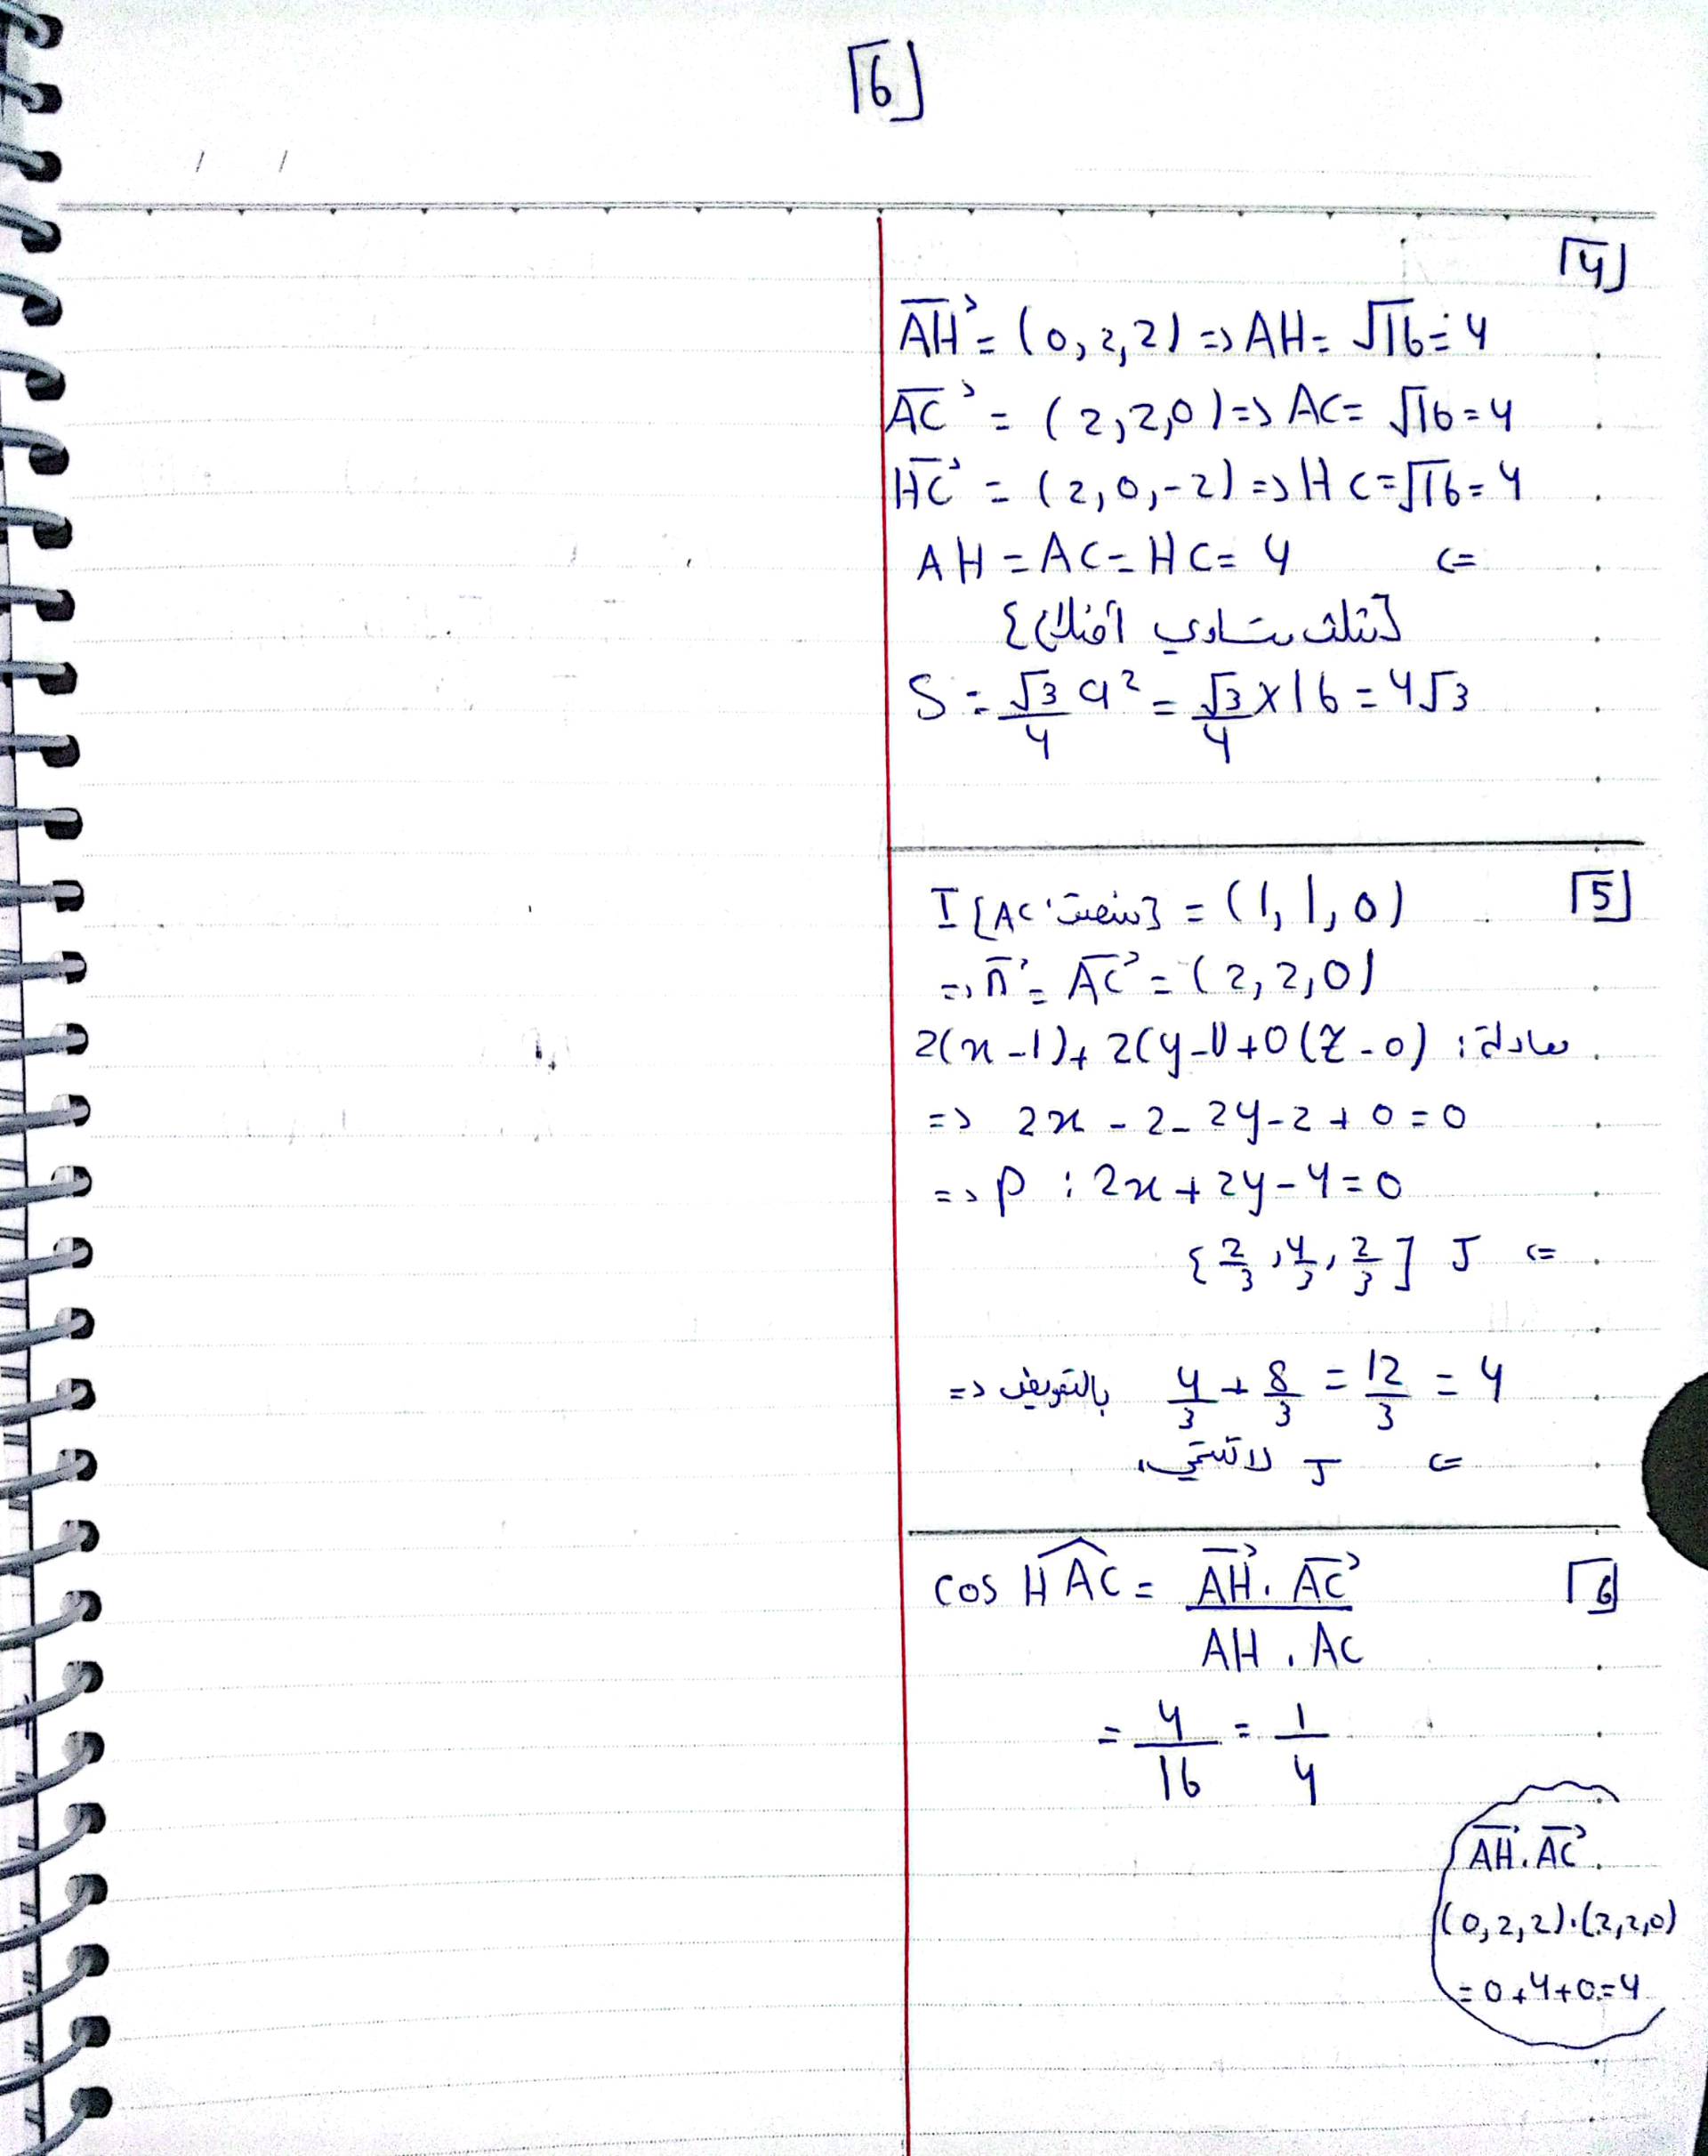 6
/ /
4
AH = (0, 2, 2) => AH = √16 = 4
AC = (2, 2, 0) => AC = √16 = 4
HC = (2, 0, -2) => HC = √16 = 4
AH = AC = HC = 4 <=
[مثلث متساوي أضلاع]
S = √3/4 a² = √3/4 × 16 = 4√3
5
I [منتصف AC] = (1, 1, 0)
=> n = AC = (2, 2, 0)
2(x-1) + 2(y-1) + 0(z-0) : معادلة
=> 2x - 2 - 2y - 2 + 0 = 0
=> P : 2x + 2y - 4 = 0
{2/3, 4/3, 2/3] J <=
=> بالتعويض 4/3 + 8/3 = 12/3 = 4
<= J لا تنتمي
6
cos HAC = AH . AC / AH . AC
= 4/16 = 1/4
AH . AC
(0, 2, 2) . (2, 2, 0)
= 0 + 4 + 0 = 4